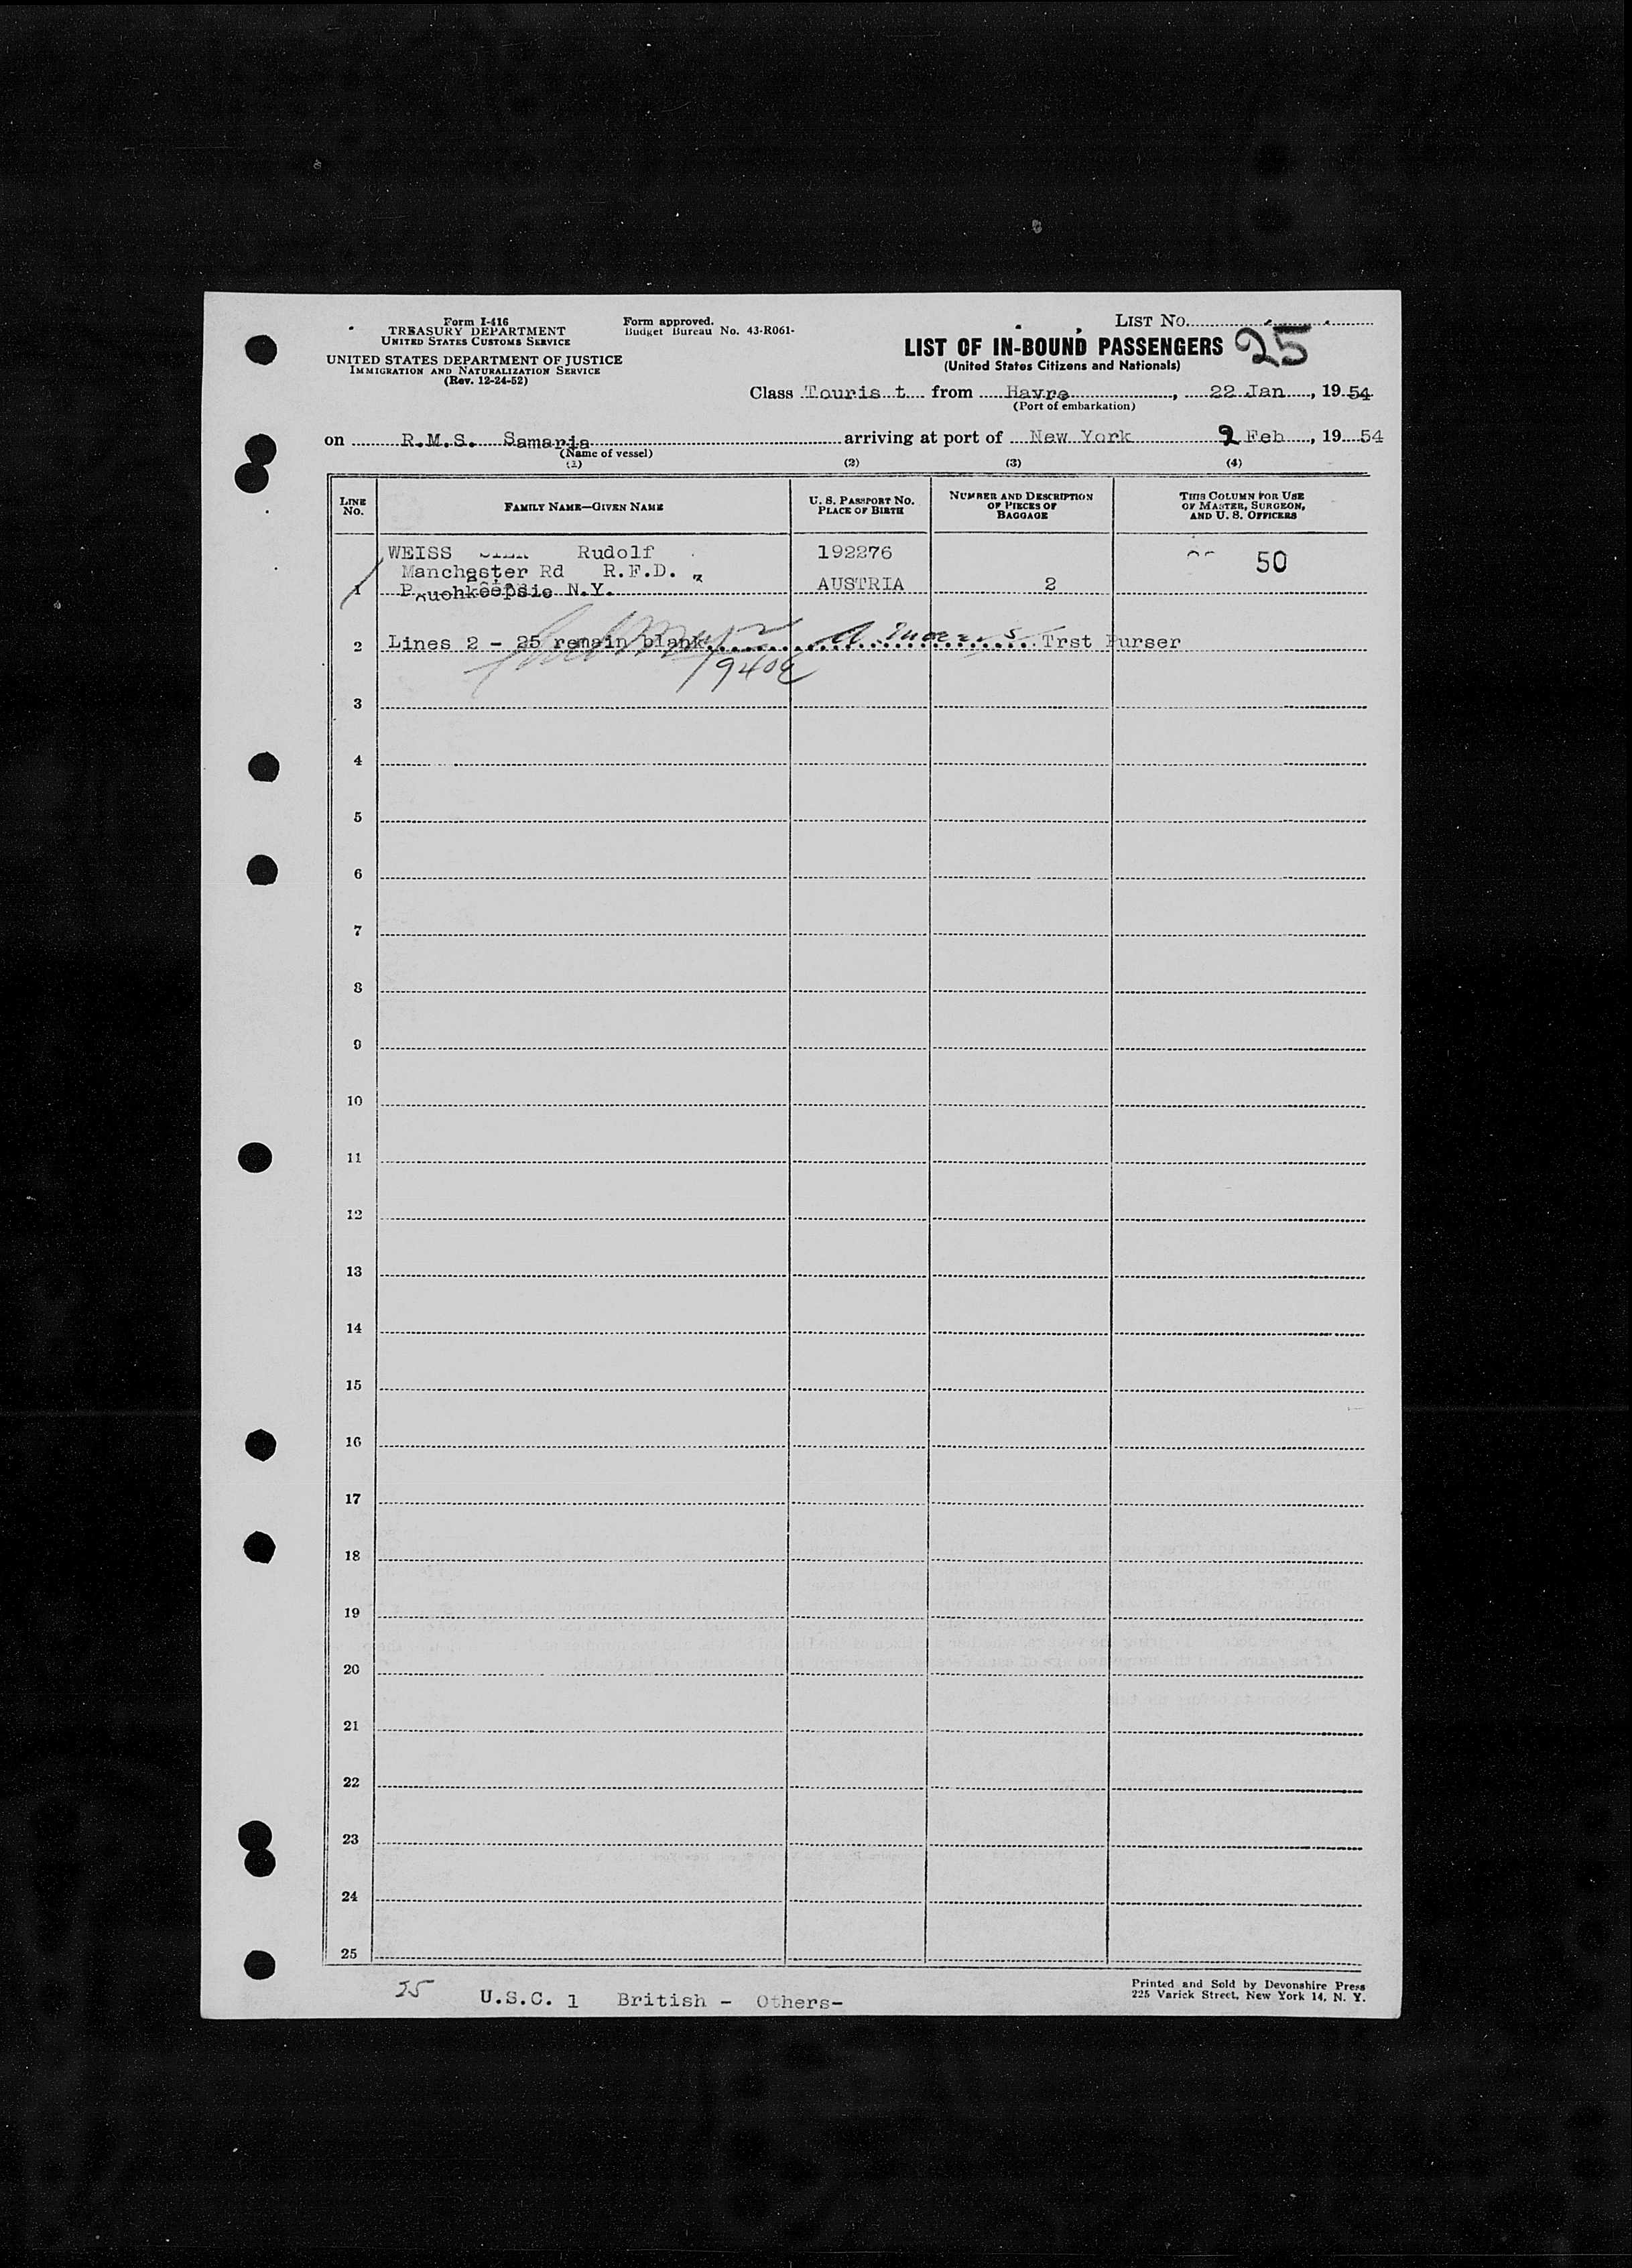 Form I-416
TREASURY DEPARTMENT
UNITED STATES CUSTOMS SERVICE
UNITED STATES DEPARTMENT OF JUSTICE
IMMIGRATION AND NATURALIZATION SERVICE
(Rev. 12-24-52)
Form approved.
Budget Bureau No. 43-R061-
LIST No.
25
LIST OF IN-BOUND PASSENGERS
(United States Citizens and Nationals)
Class Touris t from Havre, 22 Jan, 1954
(Port of embarkation)
on R.M.S. Samaria arriving at port of New York 9 Feb, 19 54
(Name of vessel)
(1) (2) (3) (4)
LINE No.
FAMILY NAME—GIVEN NAME
U. S. PASSPORT NO. PLACE OF BIRTH
NUMBER AND DESCRIPTION OF PIECES OF BAGGAGE
THIS COLUMN FOR USE OF MASTER, SURGEON, AND U. S. OFFICERS
WEISS Rudolf 192276 50
Manchester Rd R.F.D.
1 Poughkeepsie N.Y. AUSTRIA 2
2 Lines 2 - 25 remain blank Trst Purser
19408
3
4
5
6
7
8
9
10
11
12
13
14
15
16
17
18
19
20
21
22
23
24
25
25
U.S.C. 1 British - Others-
Printed and Sold by Devonshire Press
225 Varick Street, New York 14, N. Y.